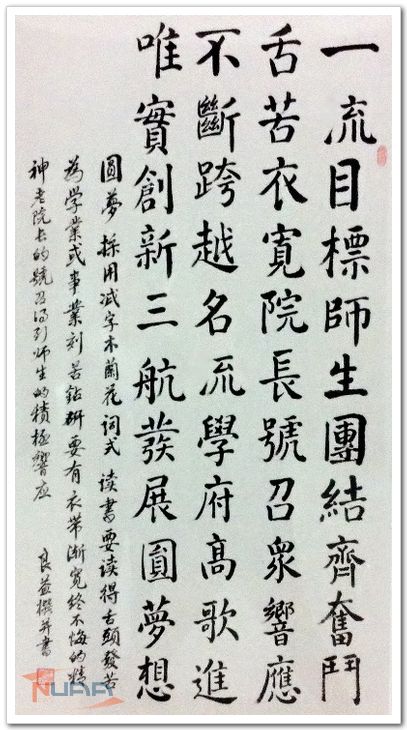 一流目標師生團結齊奮鬥
舌苦衣寬院長號召眾響應
不斷跨越名流學府高歌進
唯實創新三航發展圓夢想
圓夢 採用减字木蘭花词式 读書要读得舌頭發苦
為学業或事業刻苦鉆研要有衣带漸宽終不悔的精
神老院长的號召得到师生的積極響应
良益撰并書
NUAA